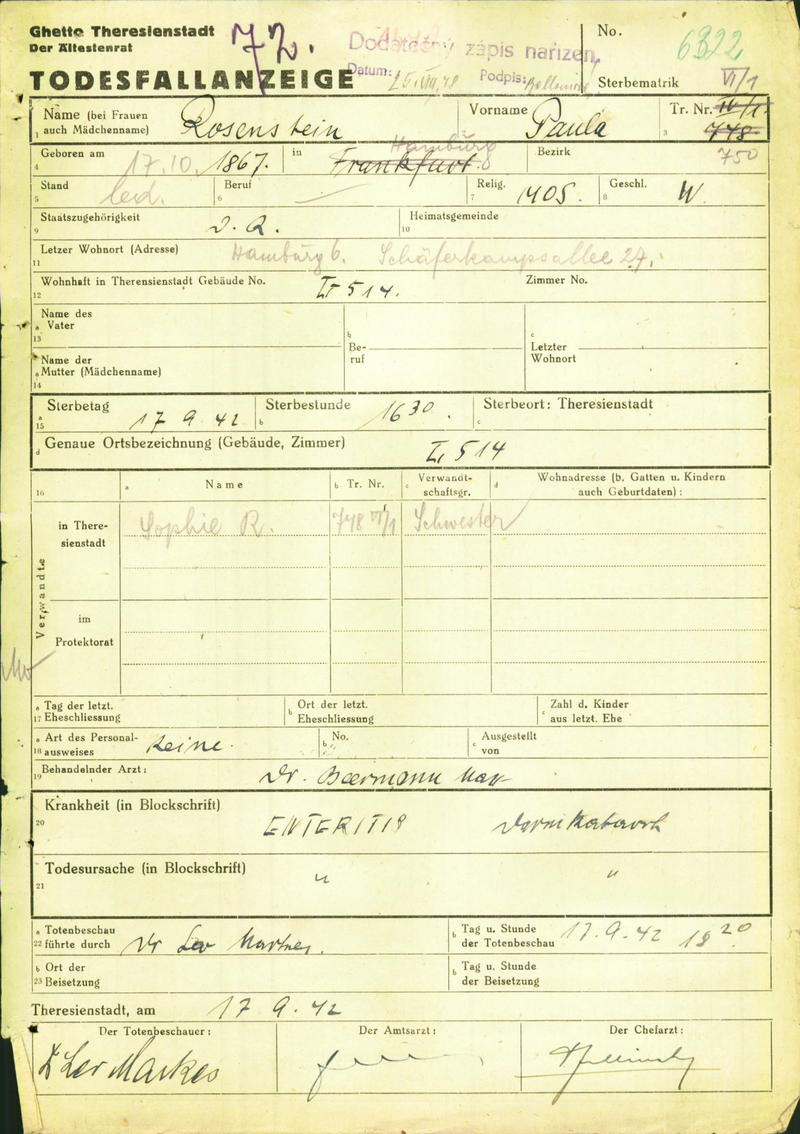 Ghetto Theresienstadt
Der Ältestenrat
72.
Dodatečný zápis nařízen
Datum: Podpis:
No. 6322
TODESFALLANZEIGE
Sterbematrik VI/1
Name (bei Frauen auch Mädchenname) Rosenstein Vorname Paula Tr. Nr. IV/1
1 3 778 750
Geboren am 17.10. 1867. in Frankfurt. Hamburg Bezirk
4
Stand led. Beruf Relig. mos. Geschl. W.
5 6 7 8
Staatszugehörigkeit D.R. Heimatsgemeinde
9 10
Letzer Wohnort (Adresse) Hamburg 6. Schäferkampsallee 27.
11
Wohnhaft in Therensienstadt Gebäude No. L 514. Zimmer No.
12
Name des
a Vater b c
13 Be- Letzter
Name der ruf Wohnort
a Mutter (Mädchenname)
14
Sterbetag 17 9 42 Sterbestunde 1630. Sterbeort: Theresienstadt
a 15 b c
d Genaue Ortsbezeichnung (Gebäude, Zimmer) L 514
16 a Name b Tr. Nr. c Verwandt-schaftsgr. d Wohnadresse (b. Gatten u. Kindern auch Geburtdaten) :
Verwandte
in There-sienstadt Sophie R. 748 VI/1 Schwester
im Protektorat
a Tag der letzt. b Ort der letzt. c Zahl d. Kinder
17 Eheschliessung Eheschliessung aus letzt. Ehe
a Art des Personal- b No. c Ausgestellt
18 ausweises Keine. von
19 Behandelnder Arzt: Dr. Baermann Max
Krankheit (in Blockschrift)
20 ENTERITIS Darmkatarrh
Todesursache (in Blockschrift)
21 " "
a Totenbeschau b Tag u. Stunde
22 führte durch Dr Leo der Totenbeschau 17.9.42 18 20
b Ort der b Tag u. Stunde
23 Beisetzung der Beisetzung
Theresienstadt, am 17 9. 42
Der Totenbeschauer: Der Amtsarzt: Der Chefarzt:
Dr Leo Markes